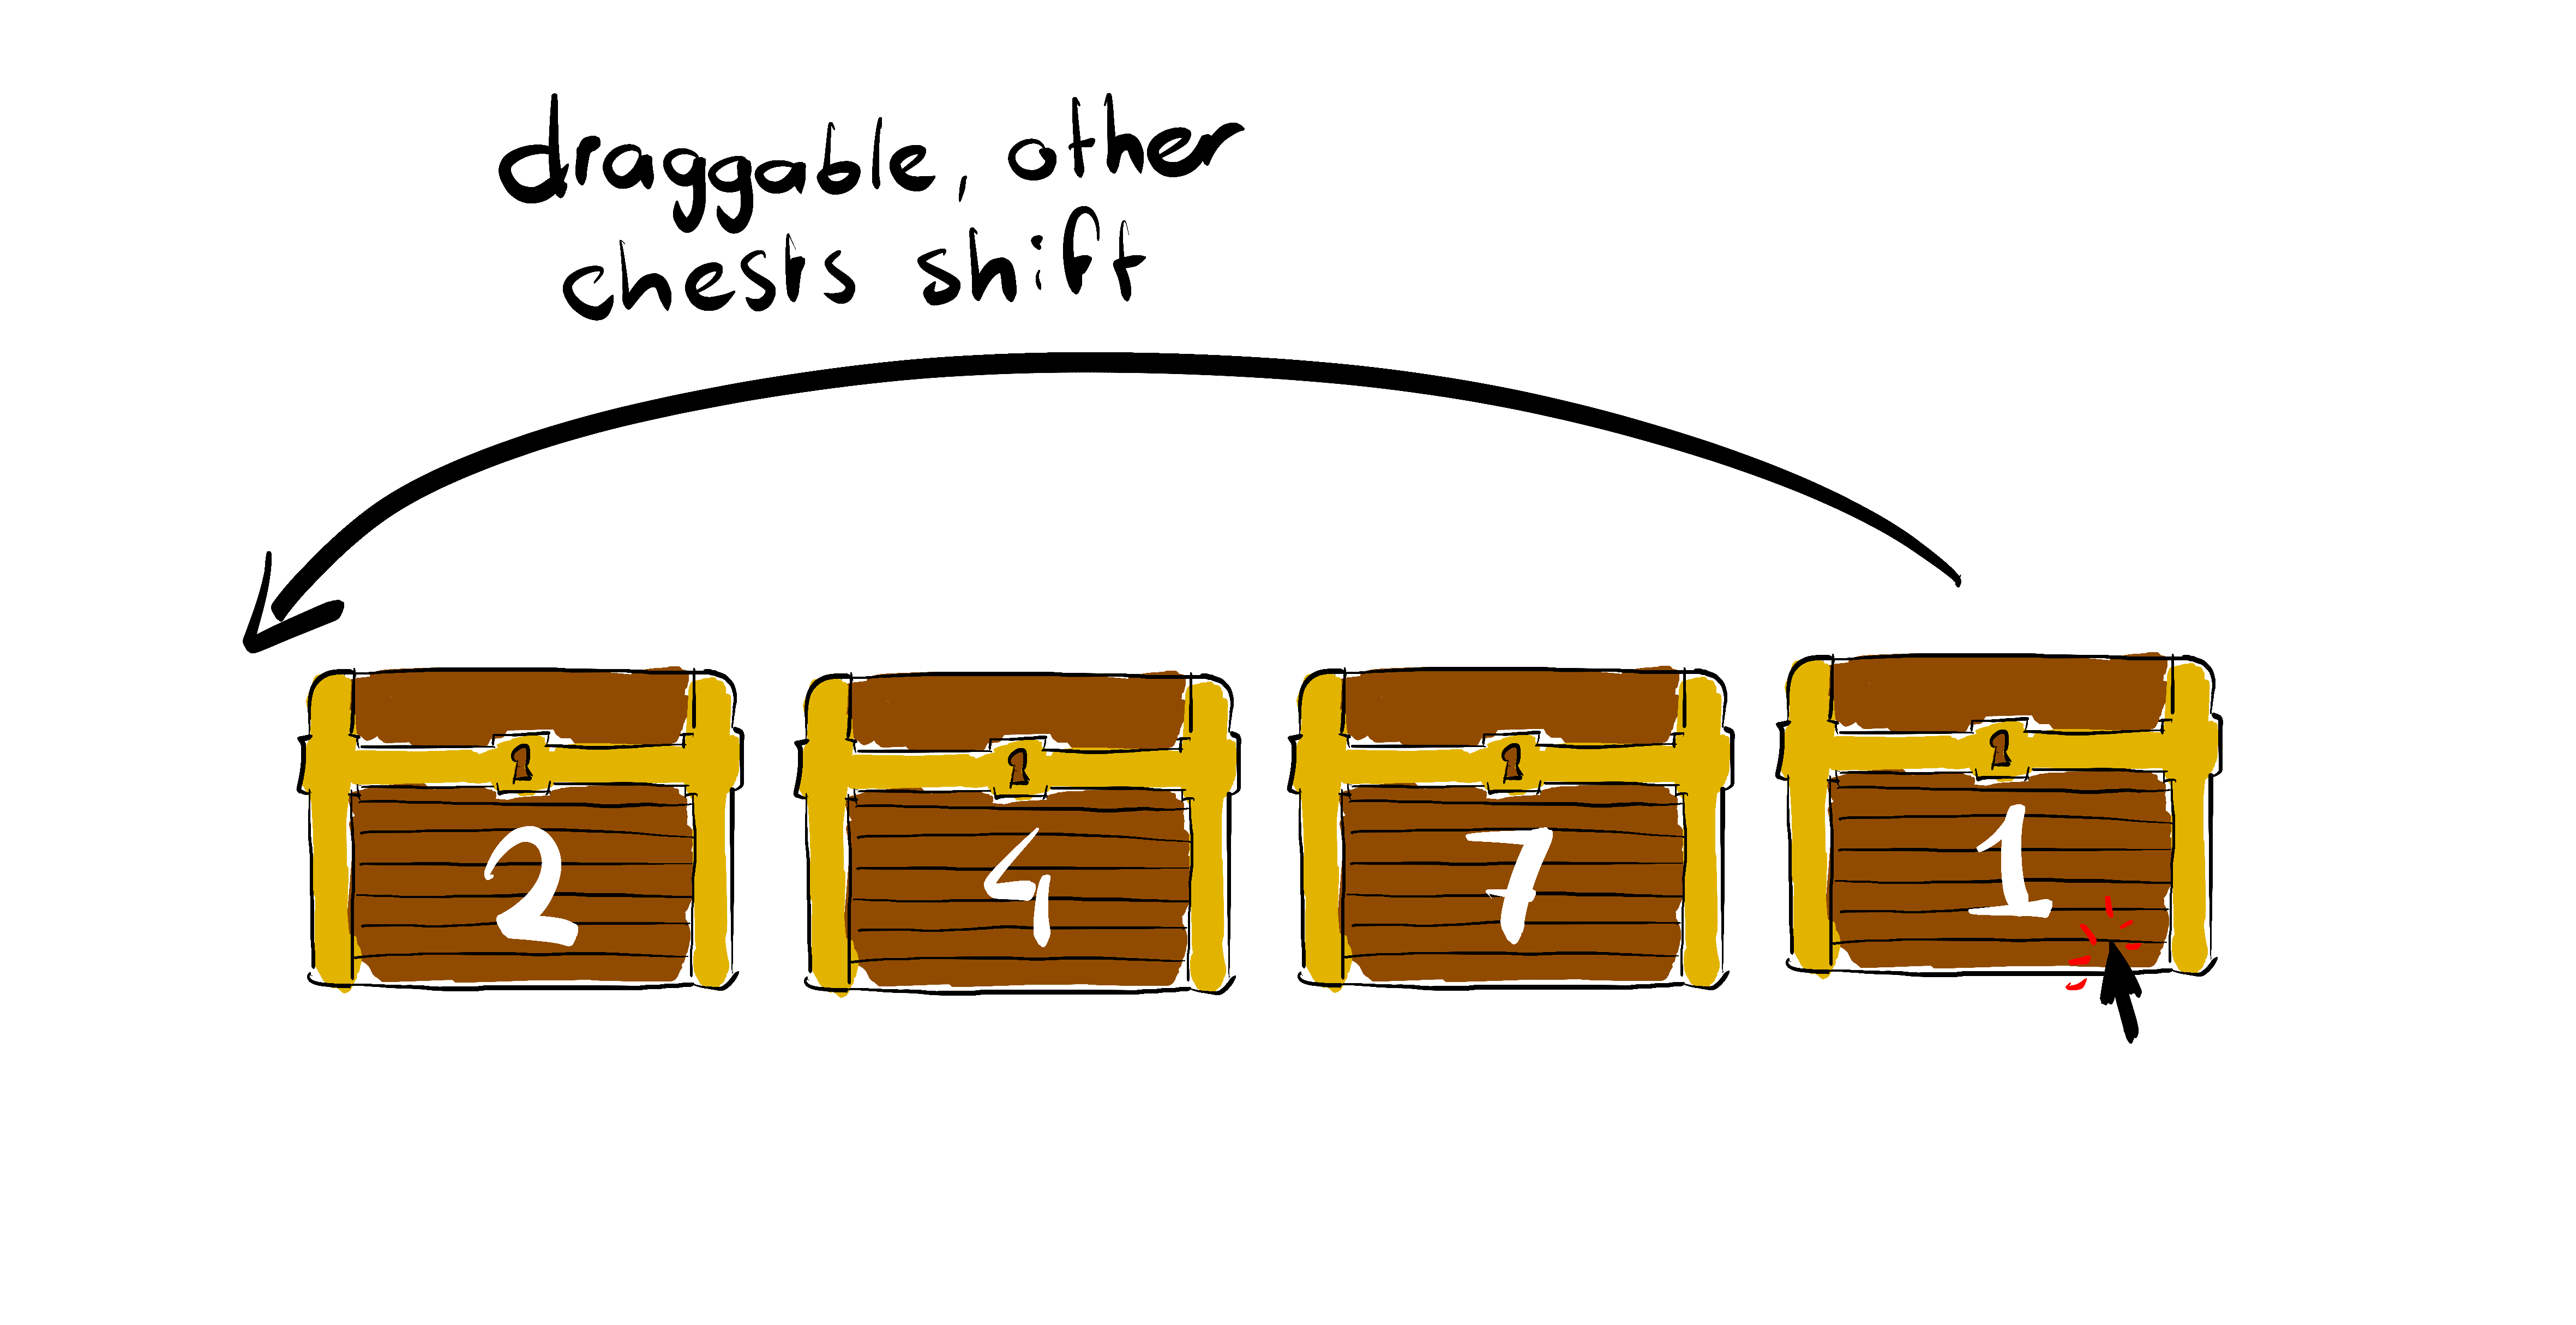 draggable, other
chests shift
2 4 7 1